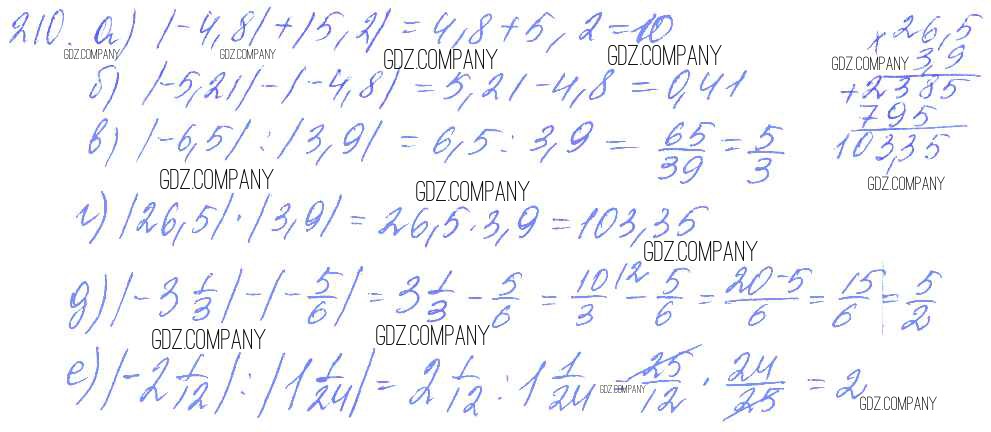 210. а) |-4,8|+|5,2| = 4,8+5,2=10
б) |-5,21|-|-4,8| = 5,21-4,8 = 0,41
в) |-6,5| : |3,9| = 6,5 : 3,9 = 65/39 = 5/3
г) |26,5| · |3,9| = 26,5·3,9 = 103,35
д) |-3 1/3|-|-5/6| = 3 1/3 - 5/6 = 10/3 |2 - 5/6 = 20-5/6 = 15/6 = 5/2
е) |-2 1/12| : |1 1/24| = 2 1/12 : 1 1/24 = 25/12 · 24/25 = 2
× 26,5
3,9
+2385
795
103,35
GDZ.COMPANY
GDZ.COMPANY
GDZ.COMPANY
GDZ.COMPANY
GDZ.COMPANY
GDZ.COMPANY
GDZ.COMPANY
GDZ.COMPANY
GDZ.COMPANY
GDZ.COMPANY
GDZ.COMPANY
GDZ.COMPANY
GDZ.COMPANY